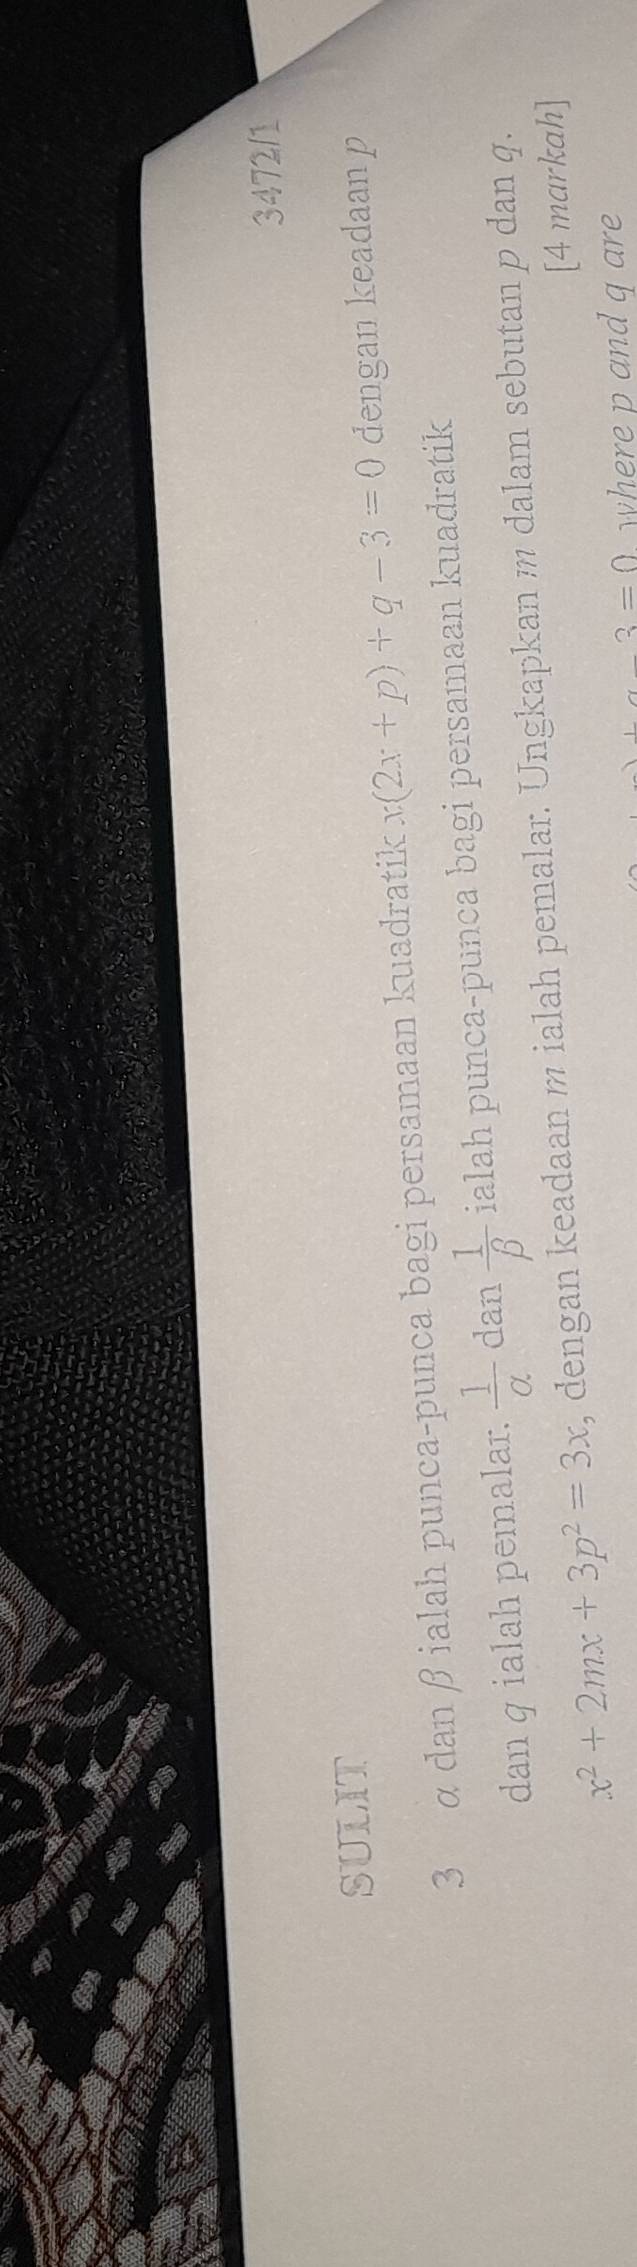 SULIT 3472/1
3 α dan β ialah punca-punca bagi persamaan kuadratik x(2x + p) + q − 3 = 0 dengan keadaan p
dan q ialah pemalar. 1/α dan 1/β ialah punca-punca bagi persamaan kuadratik
x² + 2mx + 3p² = 3x, dengan keadaan m ialah pemalar. Ungkapkan m dalam sebutan p dan q.
[4 markah]
3 = 0, where p and q are